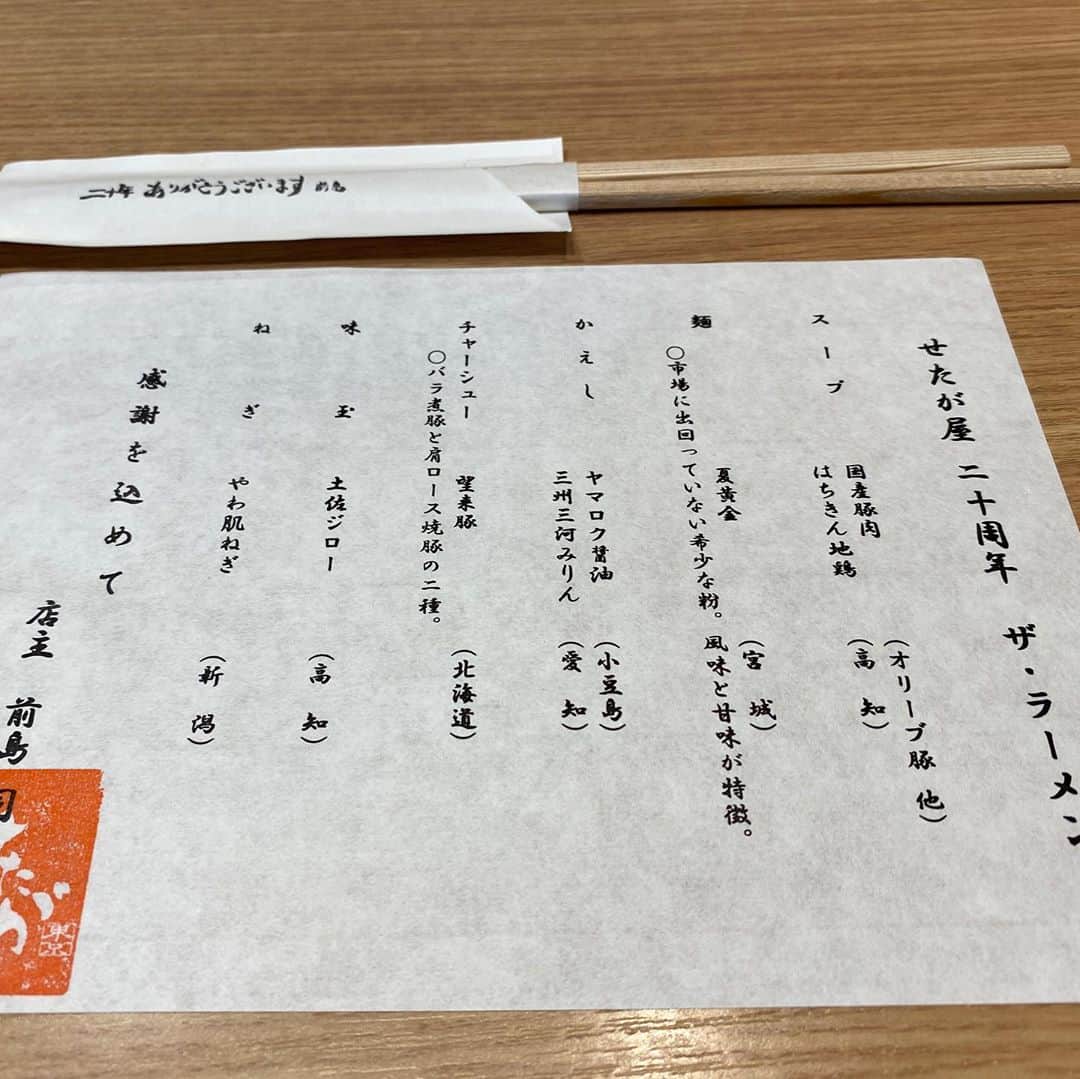 二十年 ありがとうございます 前島
せたが屋 二十周年 ザ・ラーメン
スープ 国産豚肉 (オリーブ豚 他)
はちきん地鶏 (高知)
麺 夏黄金 (宮城)
〇市場に出回っていない希少な粉。風味と甘味が特徴。
かえし ヤマロク醤油 (小豆島)
三州三河みりん (愛知)
チャーシュー 望来豚 (北海道)
〇バラ煮豚と肩ロース焼豚の二種。
味玉 土佐ジロー (高知)
ねぎ やわ肌ねぎ (新潟)
感謝を込めて
店主 前島 司
たが
東京